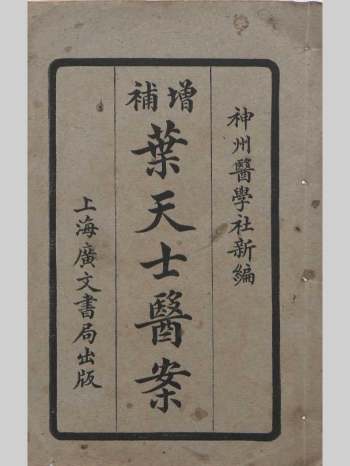 神州醫學社新編
增補
葉天士醫案
上海廣文書局出版